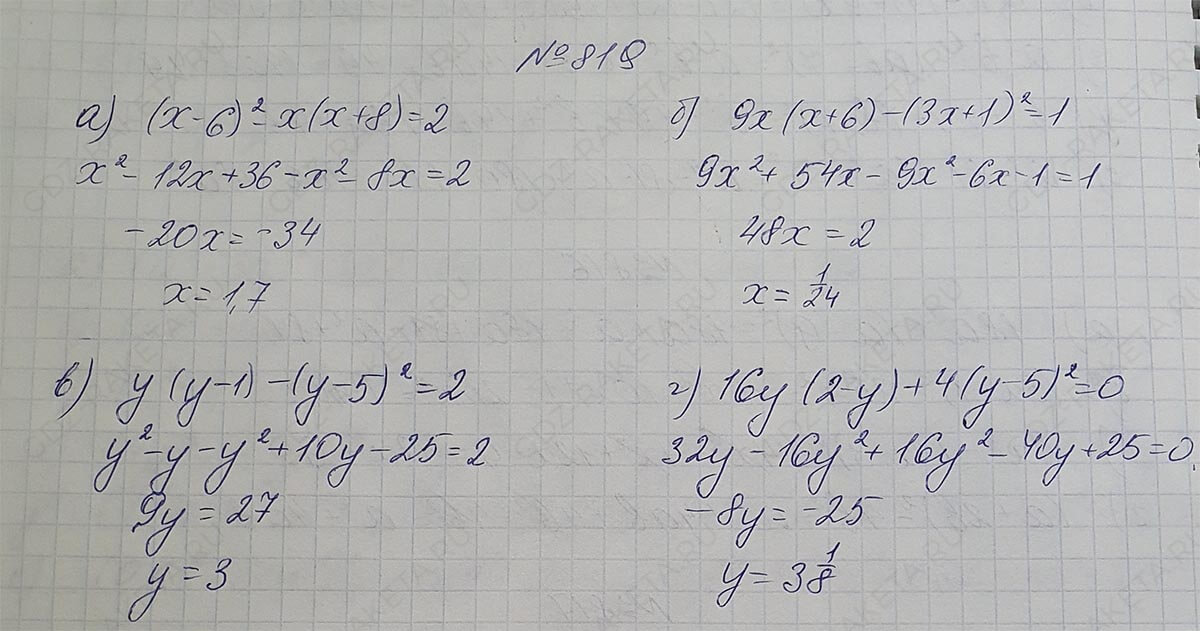 №819
а) (x-6)²-x(x+8)=2
x²-12x+36-x²-8x=2
-20x=-34
x=1,7
б) 9x(x+6)-(3x+1)²=1
9x²+54x-9x²-6x-1=1
48x=2
x=1/24
в) y(y-1)-(y-5)²=2
y²-y-y²+10y-25=2
9y=27
y=3
г) 16y(2-y)+4(y-5)²=0
32y-16y²+16y²-40y+25=0
-8y=-25
y=3 1/8